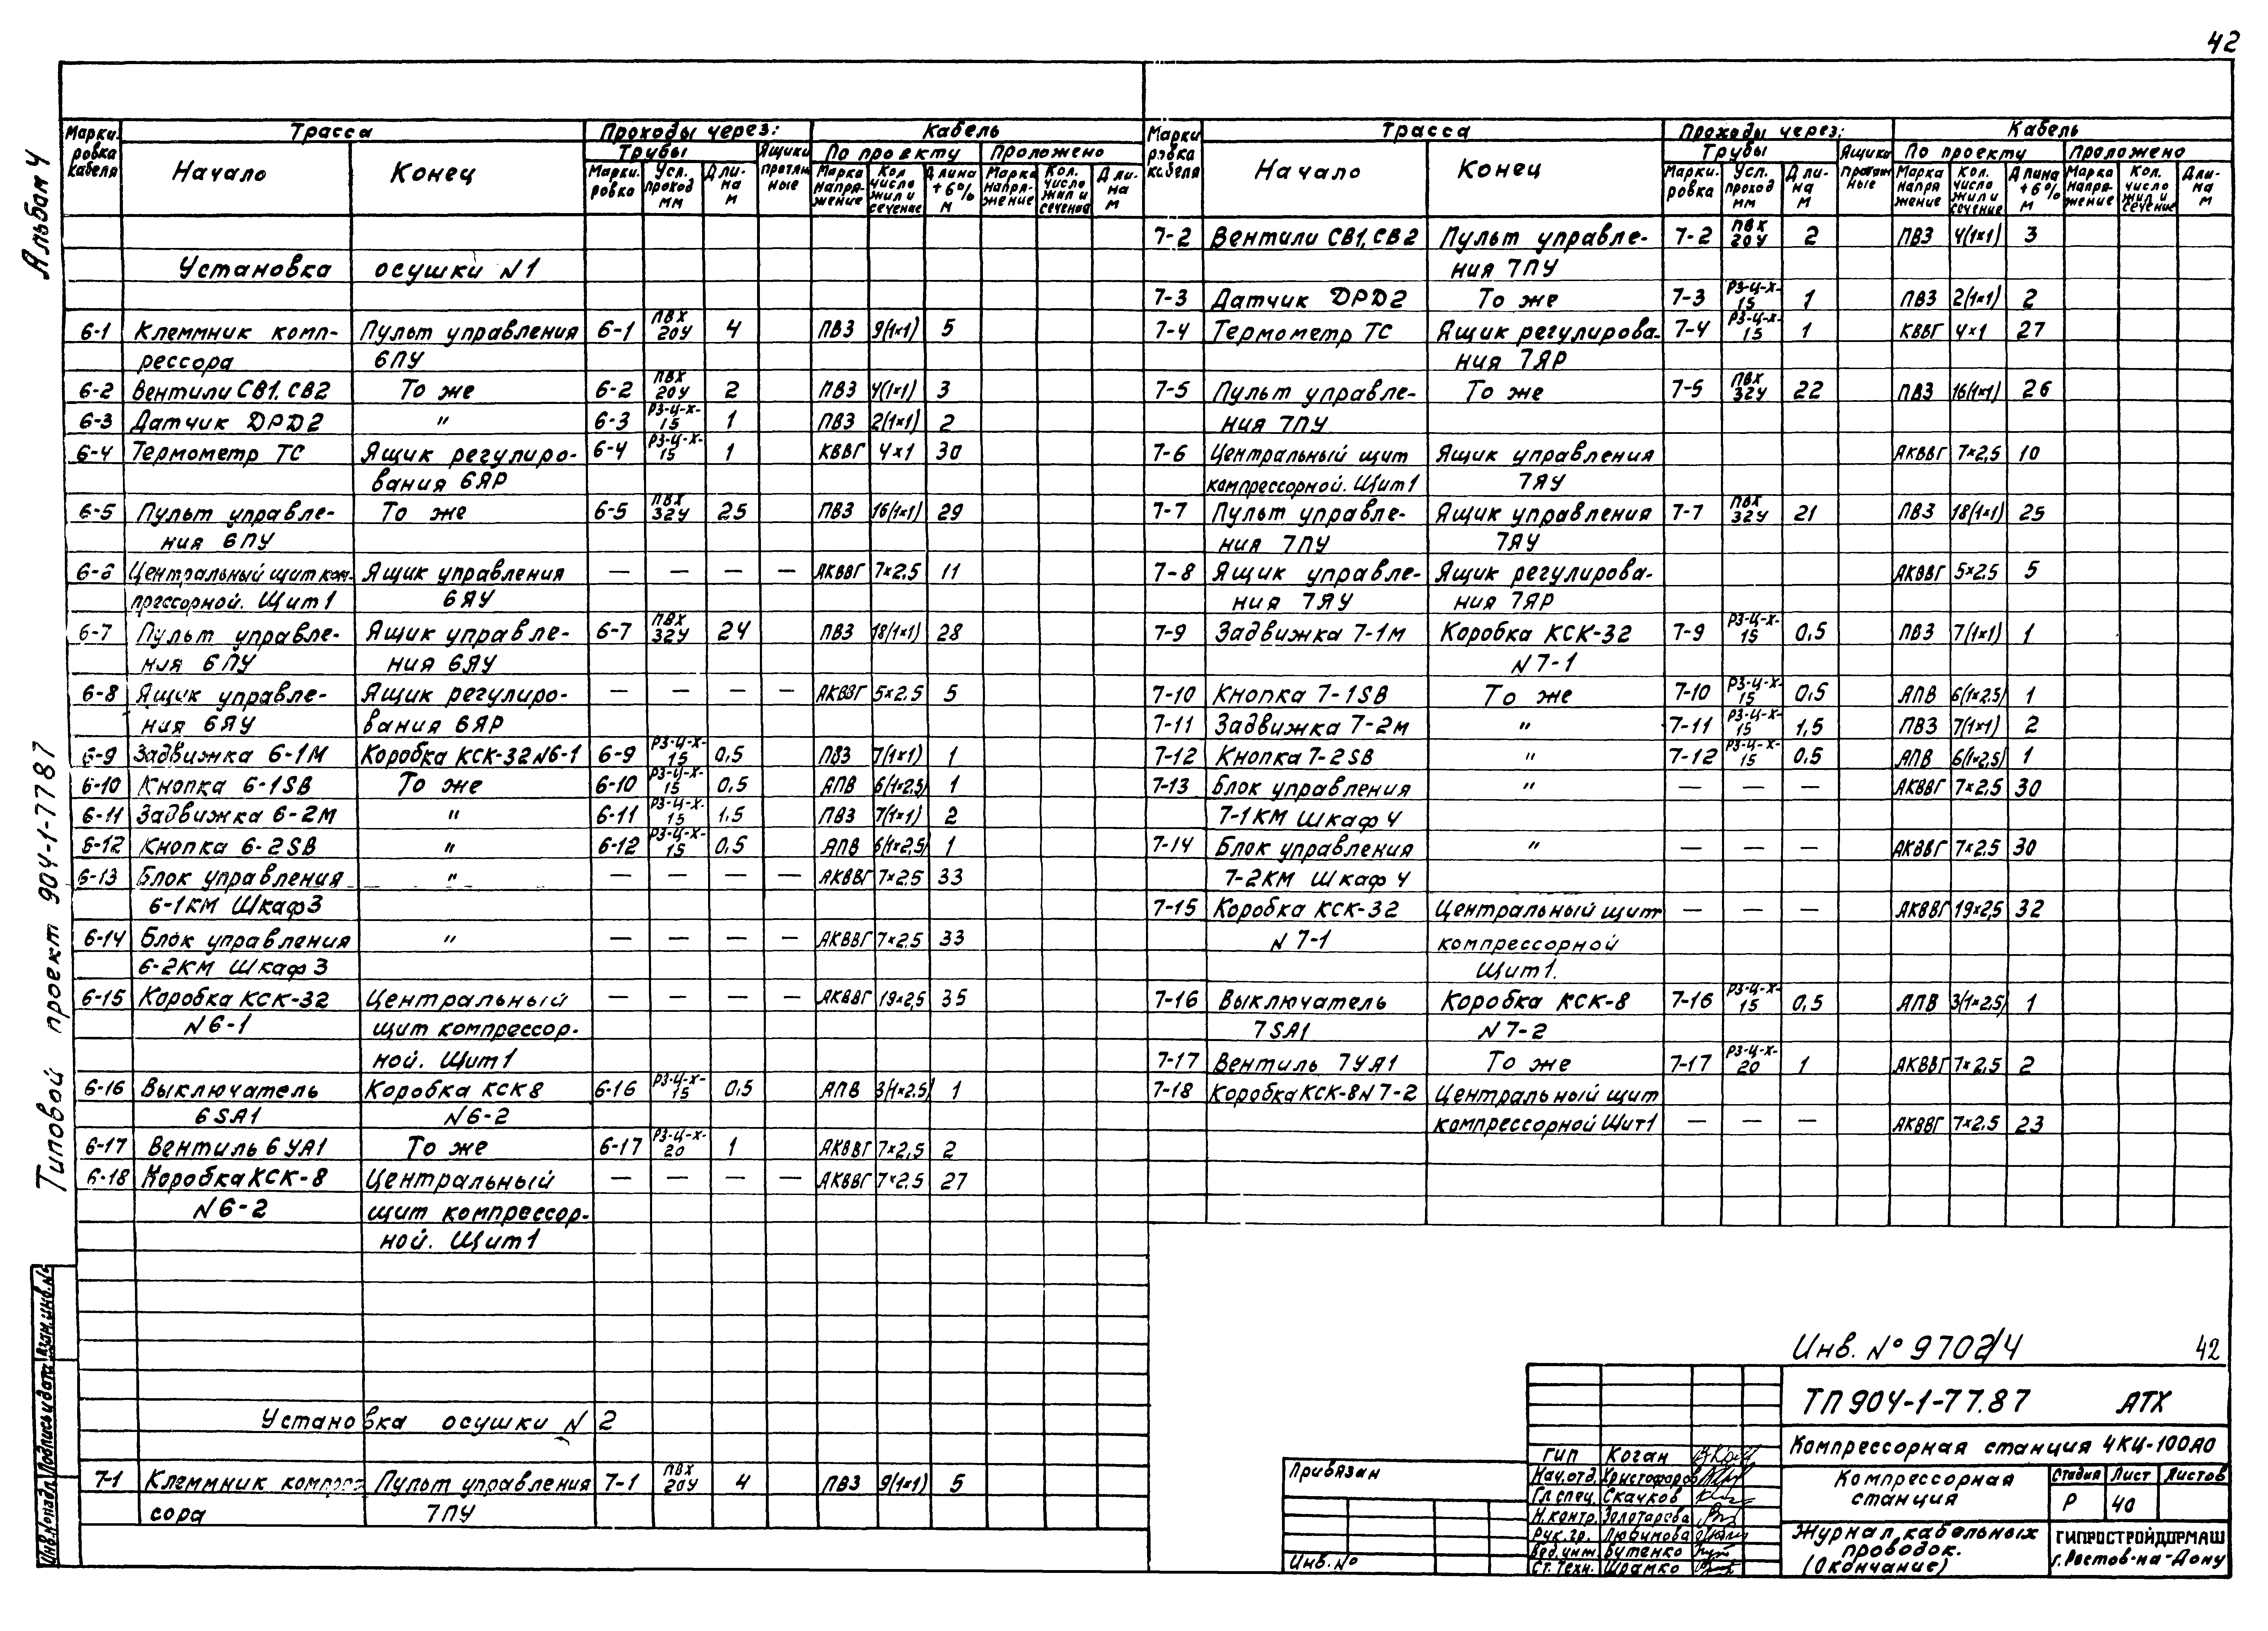 42
Альбом 4
Типовой проект 904-1-77.87
Марки-ровка кабеля | Трасса | Проходы через: | Кабель
Начало | Конец | Трубы | Ящики протяж ные | По проекту | Проложено
Марки-ровка | Усл. проход мм | Дли-на м | Марка напря-жение | Кол. число жил и сечение | Длина +6% м | Марка напря-жение | Кол. число жил и сечение | Дли-на м
Установка осушки N1
6-1 | Клеммник комп- | Пульт управления | 6-1 | ПВХ 20У | 4 | ПВ3 | 9(1×1) | 5
рессора | 6ПУ
6-2 | Вентили СВ1, СВ2 | То же | 6-2 | ПВХ 20У | 2 | ПВ3 | 4(1×1) | 3
6-3 | Датчик DPD2 | " | 6-3 | РЗ-Ц-Х-15 | 1 | ПВ3 | 2(1×1) | 2
6-4 | Термометр ТС | Ящик регулиро- | 6-4 | РЗ-Ц-Х-15 | 1 | КВВГ | 4×1 | 30
вания 6ЯР
6-5 | Пульт управле- | То же | 6-5 | ПВХ 32У | 25 | ПВ3 | 16(1×1) | 29
ния 6ПУ
6-6 | Центральный щит ком- | Ящик управления | — | — | — | — | АКВВГ | 7×2,5 | 11
прессорной. Щит 1 | 6ЯУ
6-7 | Пульт управле- | Ящик управле- | 6-7 | ПВХ 32У | 24 | ПВ3 | 18(1×1) | 28
ния 6ПУ | ния 6ЯУ
6-8 | Ящик управле- | Ящик регулиро- | — | — | — | — | АКВВГ | 5×2,5 | 5
ния 6ЯУ | вания 6ЯР
6-9 | Задвижка 6-1М | Коробка КСК-32 N6-1 | 6-9 | РЗ-Ц-Х-15 | 0,5 | ПВ3 | 7(1×1) | 1
6-10 | Кнопка 6-1SB | То же | 6-10 | РЗ-Ц-Х-15 | 0,5 | АПВ | 6(1×2,5) | 1
6-11 | Задвижка 6-2М | " | 6-11 | РЗ-Ц-Х-15 | 1,5 | ПВ3 | 7(1×1) | 2
6-12 | Кнопка 6-2SB | " | 6-12 | РЗ-Ц-Х-15 | 0,5 | АПВ | 6(1×2,5) | 1
6-13 | Блок управления | " | — | — | — | — | АКВВГ | 7×2,5 | 33
6-1КМ Шкаф 3
6-14 | Блок управления | " | — | — | — | — | АКВВГ | 7×2,5 | 33
6-2КМ Шкаф 3
6-15 | Коробка КСК-32 | Центральный | — | — | — | — | АКВВГ | 19×2,5 | 35
N6-1 | щит компрессор-
ной. Щит 1
6-16 | Выключатель | Коробка КСК 8 | 6-16 | РЗ-Ц-Х-15 | 0,5 | АПВ | 3(1×2,5) | 1
6SA1 | N6-2
6-17 | Вентиль 6УА1 | То же | 6-17 | РЗ-Ц-Х-20 | 1 | АКВВГ | 7×2,5 | 2
6-18 | Коробка КСК-8 | Центральный | — | — | — | — | АКВВГ | 7×2,5 | 27
N6-2 | щит компрессор-
ной. Щит 1
Установка осушки N 2
7-1 | Клеммник компрес | Пульт управления | 7-1 | ПВХ 20У | 4 | ПВ3 | 9(1×1) | 5
сора | 7ПУ
Марки ровка кабеля | Трасса | Проходы через: | Кабель
Начало | Конец | Трубы | Ящики протяж ные | По проекту | Проложено
Марки-ровка | Усл. проход мм | Дли-на м | Марка напря жение | Кол. число жил и сечение | Длина +6% м | Марка напря-жение | Кол. число жил и сечение | Дли-на м
7-2 | Вентили СВ1, СВ2 | Пульт управле- | 7-2 | ПВХ 20У | 2 | ПВ3 | 4(1×1) | 3
ния 7ПУ
7-3 | Датчик DPD2 | То же | 7-3 | РЗ-Ц-Х-15 | 1 | ПВ3 | 2(1×1) | 2
7-4 | Термометр ТС | Ящик регулирова- | 7-4 | РЗ-Ц-Х-15 | 1 | КВВГ | 4×1 | 27
ния 7ЯР
7-5 | Пульт управле- | То же | 7-5 | ПВХ 32У | 22 | ПВ3 | 16(1×1) | 26
ния 7ПУ
7-6 | Центральный щит | Ящик управления | АКВВГ | 7×2,5 | 10
компрессорной. Щит 1 | 7ЯУ
7-7 | Пульт управле- | Ящик управления | 7-7 | ПВХ 32У | 21 | ПВ3 | 18(1×1) | 25
ния 7ПУ | 7ЯУ
7-8 | Ящик управле- | Ящик регулирова- | АКВВГ | 5×2,5 | 5
ния 7ЯУ | ния 7ЯР
7-9 | Задвижка 7-1М | Коробка КСК-32 | 7-9 | РЗ-Ц-Х-15 | 0,5 | ПВ3 | 7(1×1) | 1
N7-1
7-10 | Кнопка 7-1SB | То же | 7-10 | РЗ-Ц-Х-15 | 0,5 | АПВ | 6(1×2,5) | 1
7-11 | Задвижка 7-2м | " | 7-11 | РЗ-Ц-Х-15 | 1,5 | ПВ3 | 7(1×1) | 2
7-12 | Кнопка 7-2SB | " | 7-12 | РЗ-Ц-Х-15 | 0,5 | АПВ | 6(1×2,5) | 1
7-13 | Блок управления | " | — | — | — | АКВВГ | 7×2,5 | 30
7-1КМ Шкаф 4
7-14 | Блок управления | " | — | — | — | АКВВГ | 7×2,5 | 30
7-2КМ Шкаф 4
7-15 | Коробка КСК-32 | Центральный щит | — | — | — | АКВВГ | 19×2,5 | 32
N 7-1 | компрессорной
Щит 1.
7-16 | Выключатель | Коробка КСК-8 | 7-16 | РЗ-Ц-Х-15 | 0,5 | АПВ | 3(1×2,5) | 1
7SA1 | N7-2
7-17 | Вентиль 7УА1 | То же | 7-17 | РЗ-Ц-Х-20 | 1 | АКВВГ | 7×2,5 | 2
7-18 | Коробка КСК-8 N 7-2 | Центральный щит
компрессорной Щит 1 | — | — | — | АКВВГ | 7×2,5 | 23
Инв. № 9702/4 42
ТП 904-1-77.87 АТХ
Компрессорная станция 4КЦ-100А0
Компрессорная станция
Стадия | Лист | Листов
Р | 40
Журнал кабельных проводок. (Окончание)
ГИПРОСТРОЙДОРМАШ
г. Ростов-на-Дону
ГИП Коган
Нач.отд. Христофоров
Гл.спец. Скачков
Н.контр. Золотарева
Рук.гр. Любимова
Вед.инж. Бутенко
Ст.техн. Шрамко
Привязан
Инв. №
Инв.№ подл. Подпись и дата Взам.инв.№